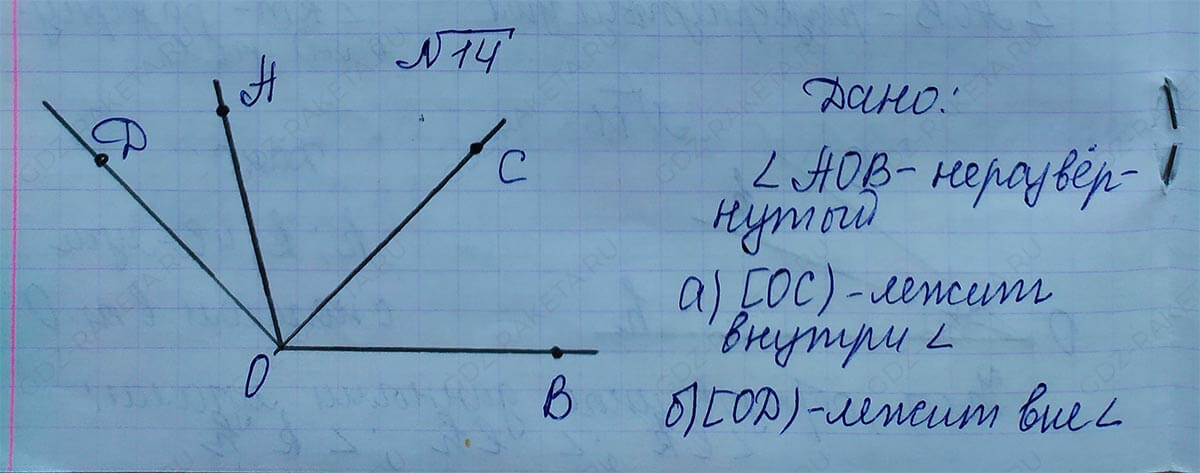 №14
А
D
С
О
В
Дано:
∠ АОВ - неразвёр-
нутый
а) [ОС) - лежит
внутри ∠
б) [OD) - лежит вне ∠
GDZ-RAKETA.RU